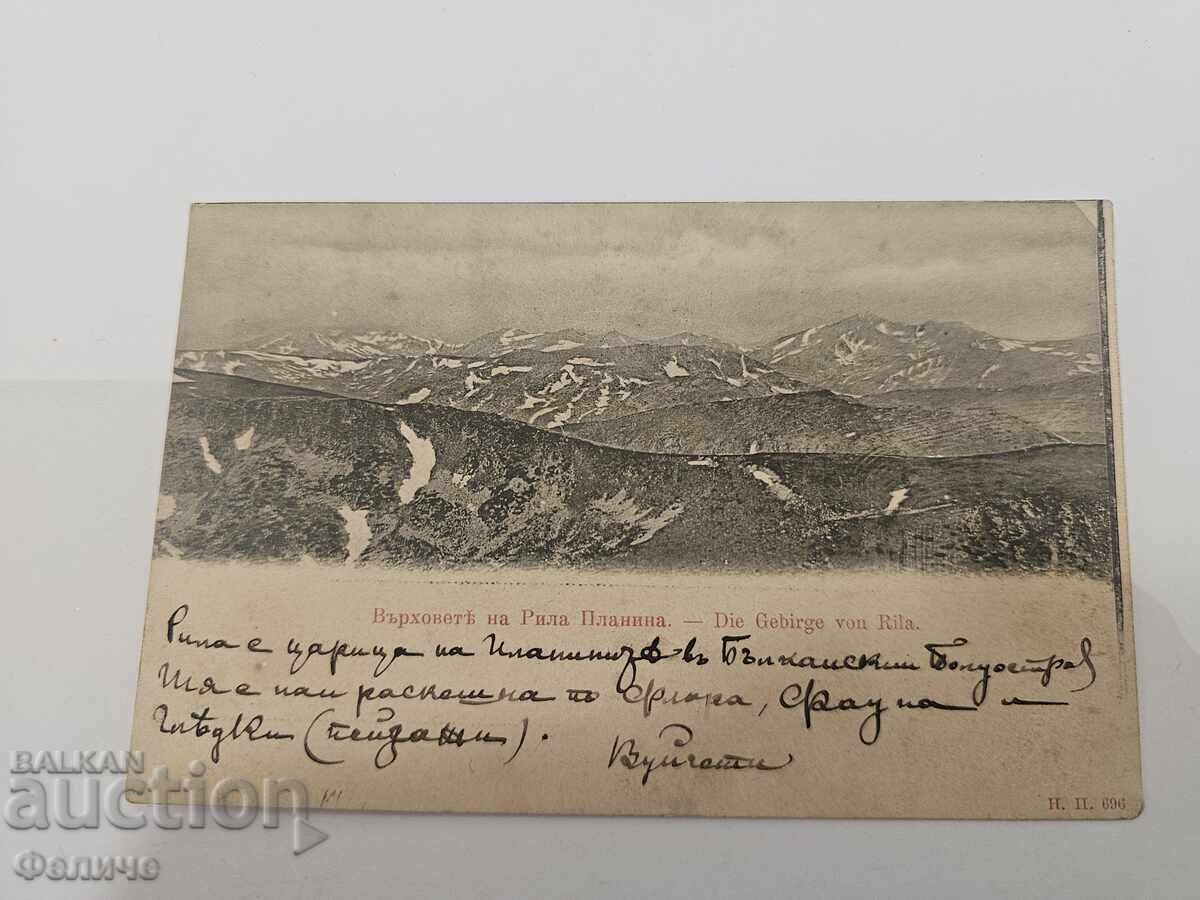 Върховетѣ на Рила Планина. — Die Gebirge von Rila.
Рила е царица на Планинитѣ въ Балкански Полуостров
Тя е най раскошна по Флора, Фауна и
Глѣдки (пейзажи).
Н. П. 696
BALKAN
auction
Феличе